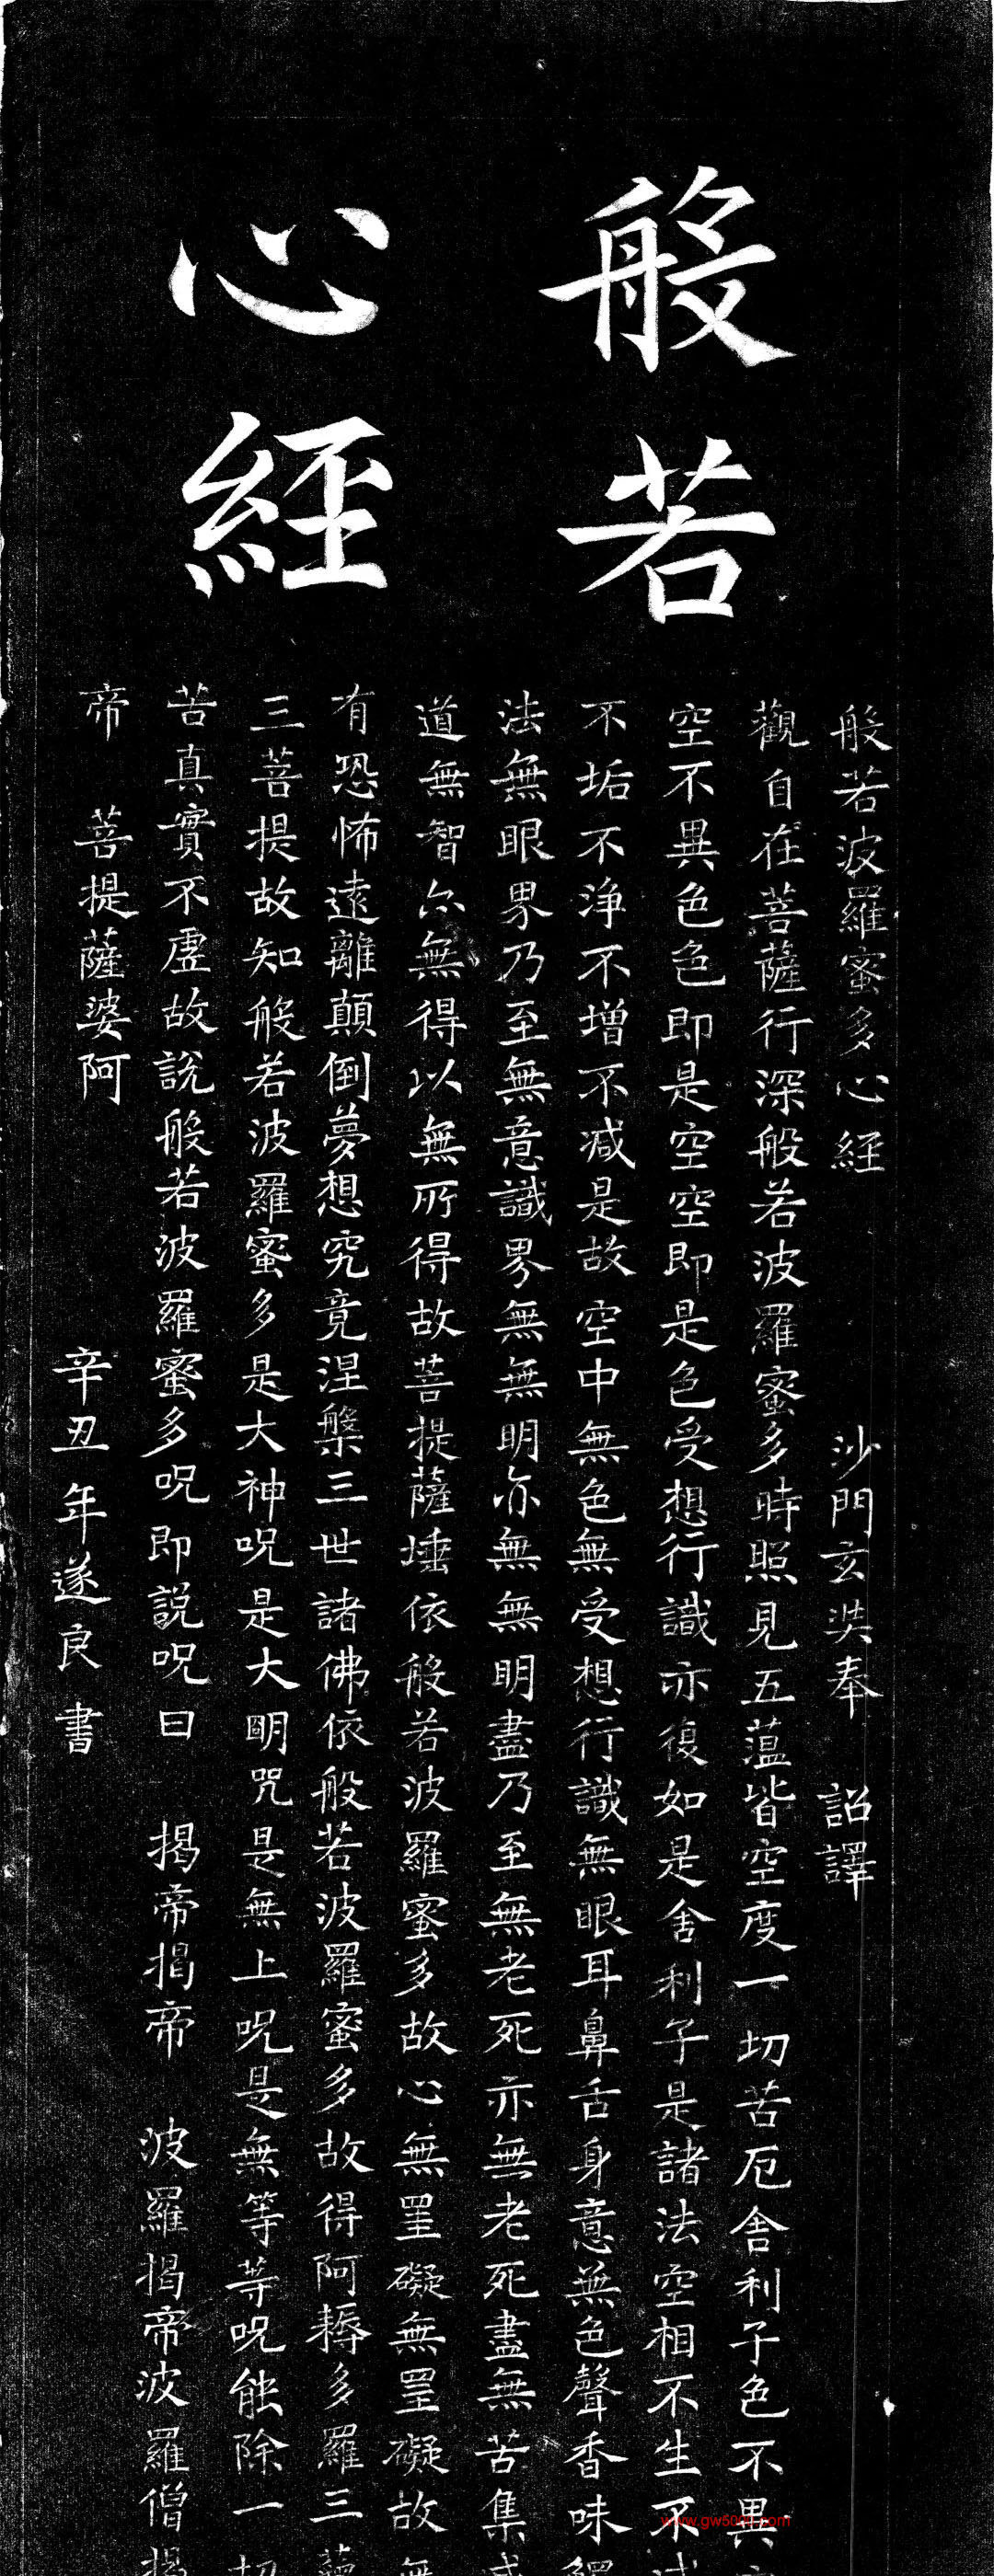 般若
心經
般若波羅蜜多心經 沙門玄奘奉 詔譯
觀自在菩薩行深般若波羅蜜多時照見五蘊皆空度一切苦厄舍利子色不異
空不異色色即是空空即是色受想行識亦復如是舍利子是諸法空相不生不
不垢不淨不增不減是故空中無色無受想行識無眼耳鼻舌身意無色聲香味
法無眼界乃至無意識界無無明亦無無明盡乃至無老死亦無老死盡無苦集
道無智亦無得以無所得故菩提薩埵依般若波羅蜜多故心無罣礙無罣礙故
有恐怖遠離顛倒夢想究竟涅槃三世諸佛依般若波羅蜜多故得阿耨多羅三
三菩提故知般若波羅蜜多是大神呪是大明咒是無上呪是無等等呪能除一
苦真實不虛故說般若波羅蜜多呪即說呪曰 揭帝揭帝 波羅揭帝波羅僧
帝 菩提薩婆阿
辛丑年遂良書
www.gw5000.com